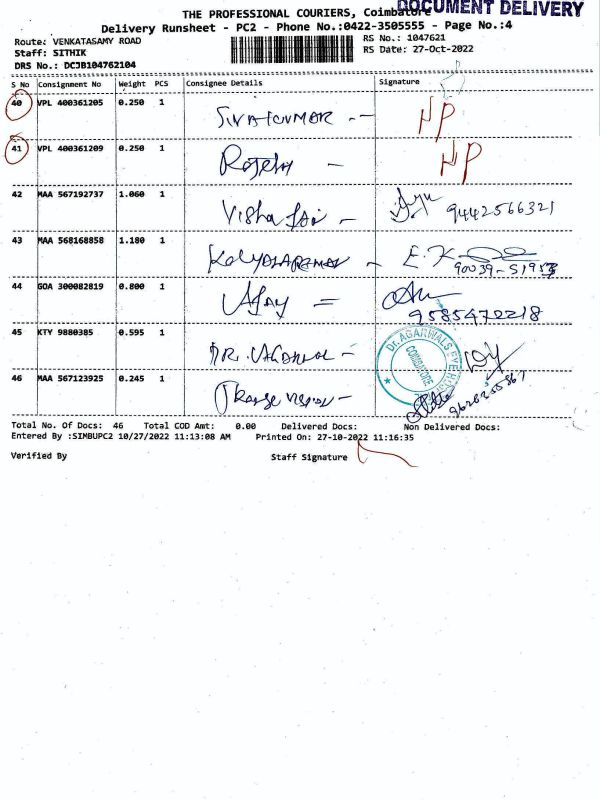 DOCUMENT DELIVERY
THE PROFESSIONAL COURIERS, Coimbatore
Delivery Runsheet - PC2 - Phone No.:0422-3505555 - Page No.:4
Route: VENKATASAMY ROAD RS No.: 1047621
Staff: SITHIK RS Date: 27-Oct-2022
DRS No.: DCJB104762104
S No Consignment No Weight PCS Consignee Details Signature
40 VPL 400361205 0.250 1 SIVAKUMAR -- NP
41 VPL 400361209 0.250 1 Rajesh - NP
42 MAA 567192737 1.060 1 Visha - 9442566321
43 MAA 568168858 1.180 1 - E.K
44 GOA 300082819 0.800 1 Ajay = 9585472218
45 KTY 9880385 0.595 1 DR. AGARWAL - Dr. AGARWALS EYE COIMBATORE
46 MAA 567123925 0.245 1 vision -
Total No. Of Docs: 46 Total COD Amt: 0.00 Delivered Docs: Non Delivered Docs:
Entered By :SIMBUPC2 10/27/2022 11:13:08 AM Printed On: 27-10-2022 11:16:35
Verified By Staff Signature